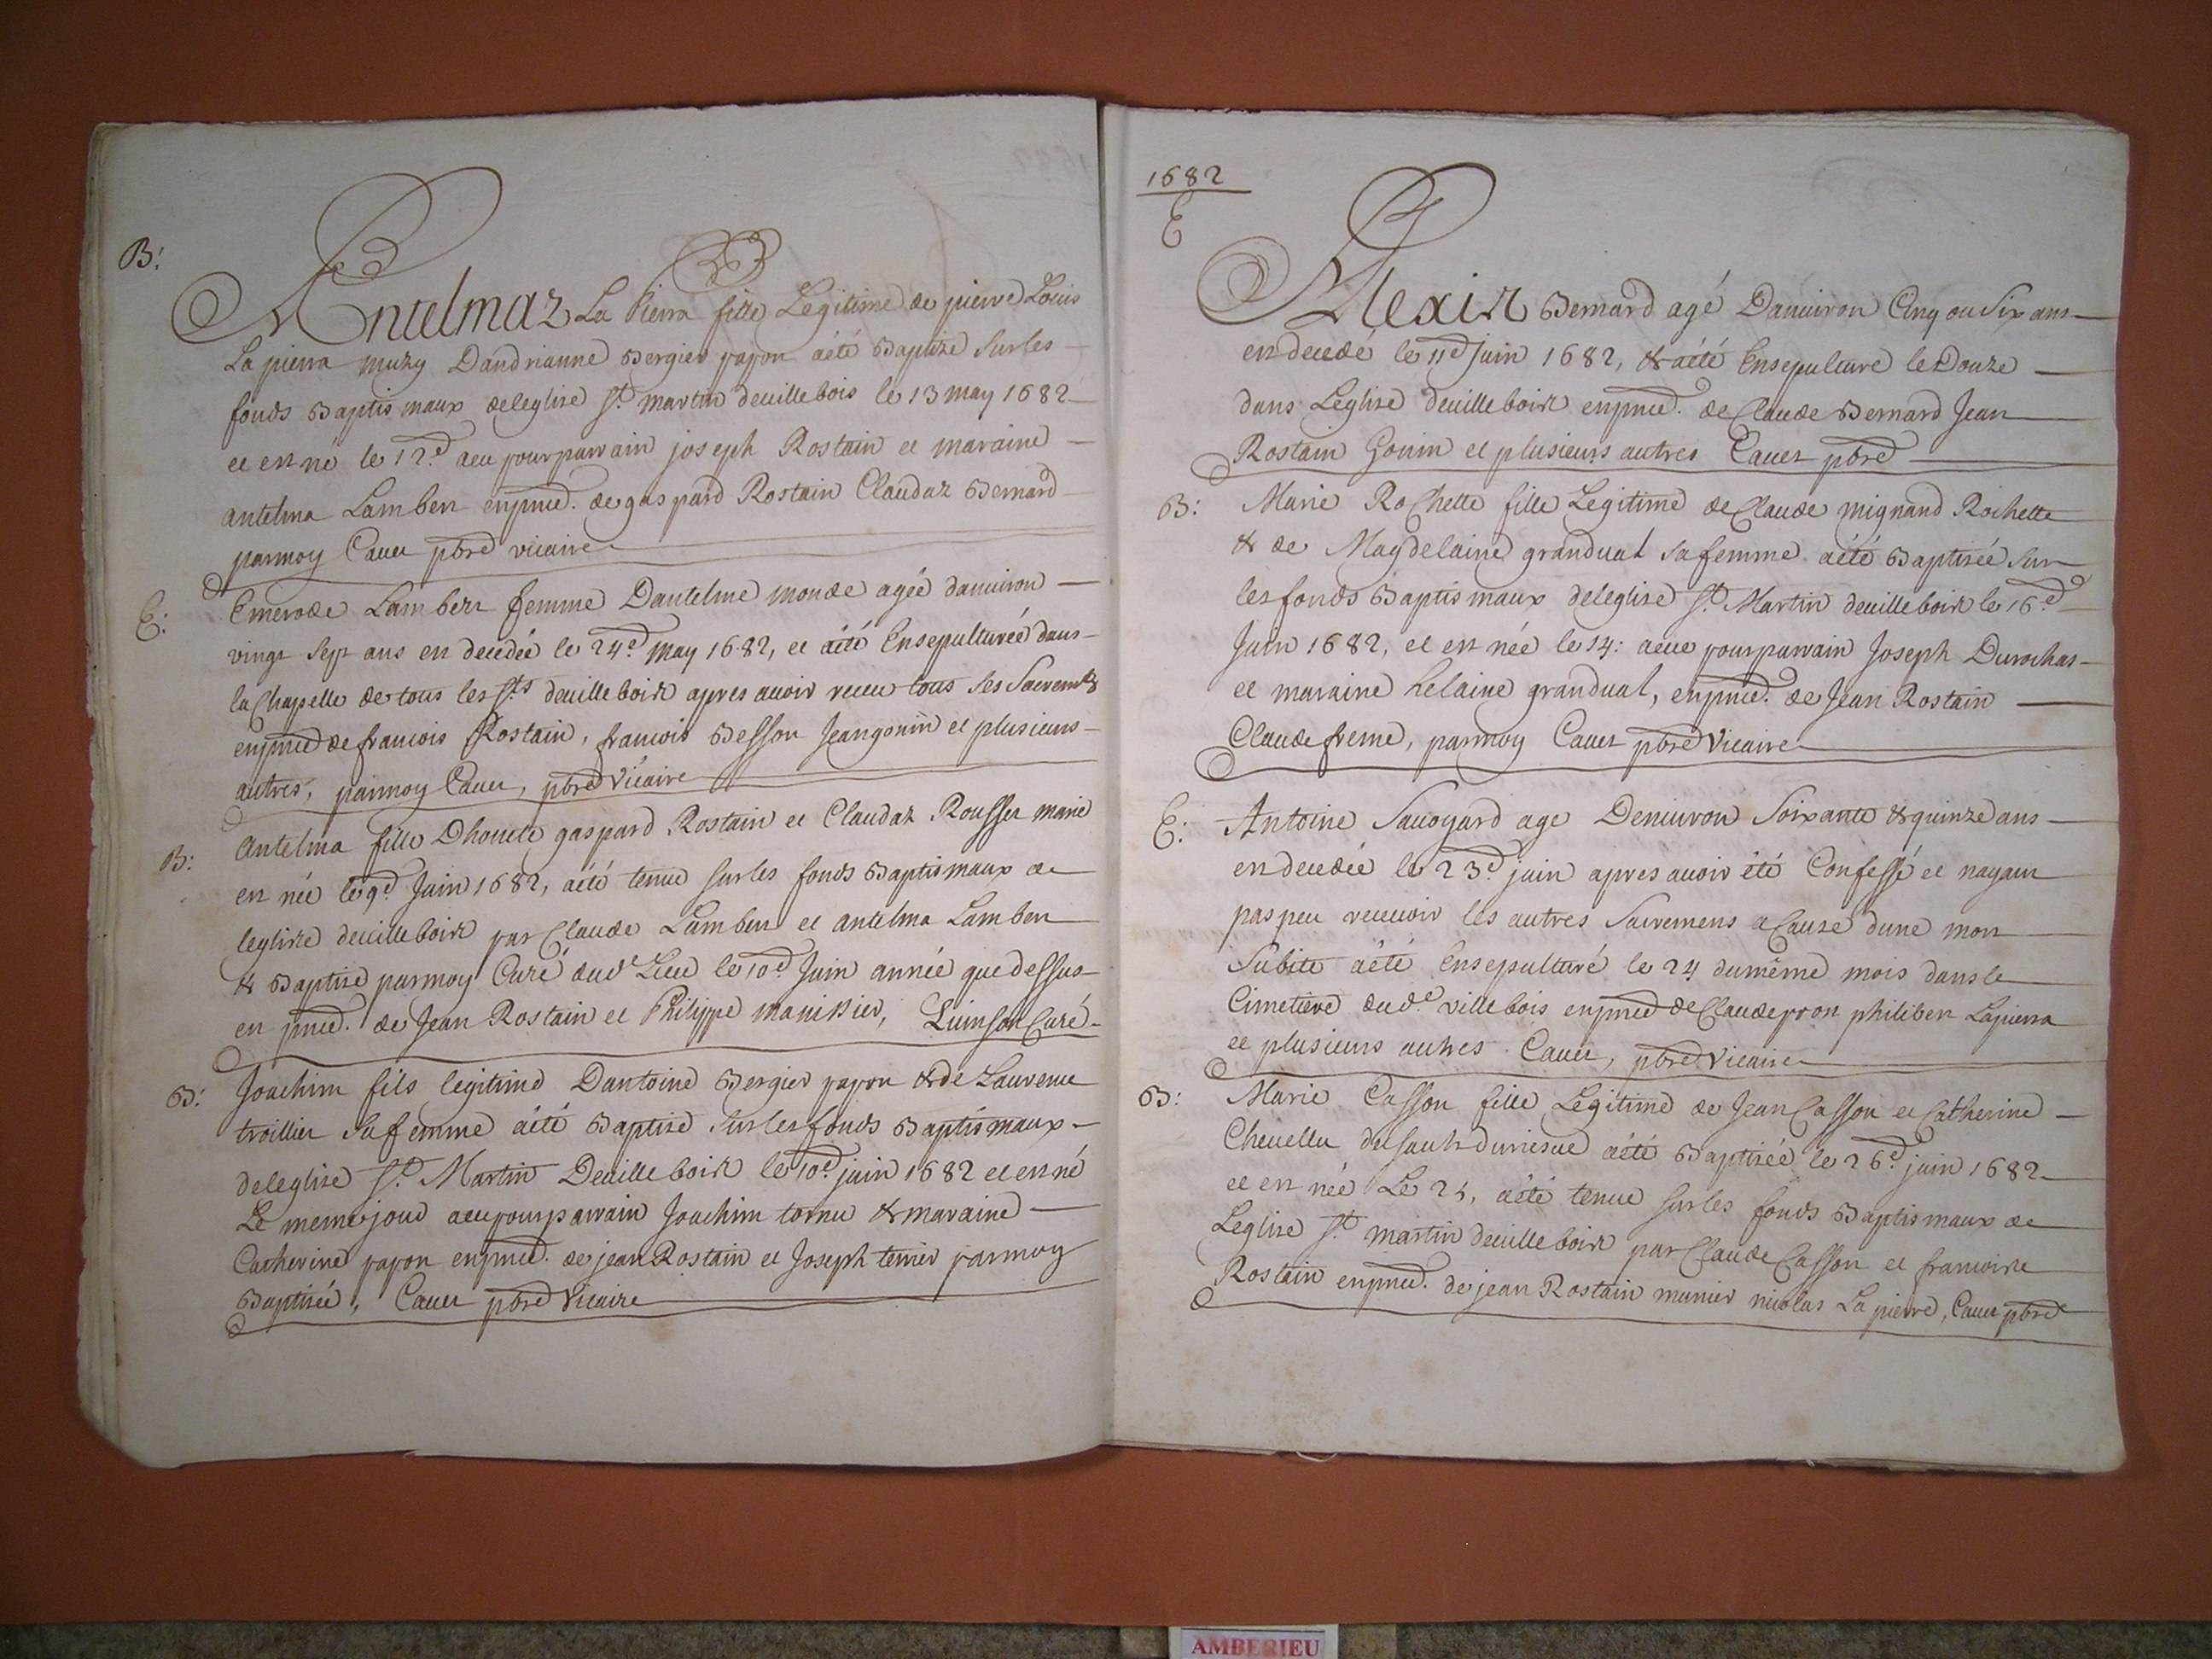 B:
Antelmaz La Pierra fille Legitime de pierre Louis
La pierra muzy Dandrianne Bergier papon aété Baptize sur les
fonds Baptismaux deleglise St. martin deuillebois le 13 may 1682
et est né le 12.d aeu pour parrain joseph Rostain et maraine
antelma Lambert enpnce. de gaspard Rostain Claudaz Bernard
parmoy Cauet pbre vicaire
E:
Emerode Lambert femme Dantelme monde agée danuiron
vingt sept ans est decedée le 24.e may 1682, et aété Ensepulturée dans
la Chapelle de tous les Sts deuilleboix apres auoir receu tous ses Sacremts
enpnce de francois Rostain, francois Besson Jeangonin et plusieurs
autres, parmoy Cauet, pbre Vicaire
B:
Antelma fille Dhonete gaspard Rostain et Claudaz Rousset marié
est née le 9.e Juin 1682, aété tenue sur les fonds Baptismaux de
leglize deuilleboix par Claude Lambert et antelma Lambert
& Baptize parmoy Curé dud.t Lieu le 10.e Juin année que dessus
en pnce. de Jean Rostain et Philippe manissier, Luinson Curé
B:
Joachim fils legitime Dantoine Bergier papon & de Laurence
troillier sa femme aété Baptize sur les fonds Baptismaux
deleglise St. Martin Deuilleboix le 10.e juin 1682 et est né
Le meme jour aeu pour parrain Joachim tornu & maraine
Catherine papon enpnce. de jean Rostain et Joseph terrier parmoy
Baptizée, Cauet pbre Vicaire
1682
E
Alexix Bernard agé Danuiron Cinq ou Six ans
est decedé le 11.e Juin 1682, & aété Ensepulturé le Douze
dans Leglise deuilleboix enpnce. de Claude Bernard Jean
Rostain Gonin et plusieurs autres Cauet pbre
B:
Marie Rochette fille Legitime de Claude mignand Rochette
& de Magdelaine granduat sa femme aété Baptisée sur
les fonds Baptismaux deleglise St. Martin deuilleboix le 16.e
Juin 1682, et est née le 14: aeue pour parrain Joseph Durochas
et maraine helaine granduat, enpnce. de Jean Rostain
Claude freme, parmoy Cauet pbre Vicaire
E:
Antoine Sauoyard age Denuiron Soixante & quinze ans
est decedée le 23.e juin apres auoir été Confessé et nayant
pas peu receuoir les autres Sacremens a Cause dune mort
Subite aété Ensepulturé le 24 dumême mois dans le
Cimetiere dud.t villebois enpnce de Claude pron philibert Lapierra
et plusieurs autres Cauet, pbre Vicaire
B:
Marie Casson fille Legitime de Jean Casson et Catherine
Cheuellu du sault aété Baptisée le 26.e juin 1682
et est née Le 25, aété tenue sur les fonds Baptismaux de
Leglise St. martin deuilleboix par Claude Casson et francoise
Rostain enpnce. de jean Rostain munier nicolas La pierre, Cauet pbre
AMBERIEU